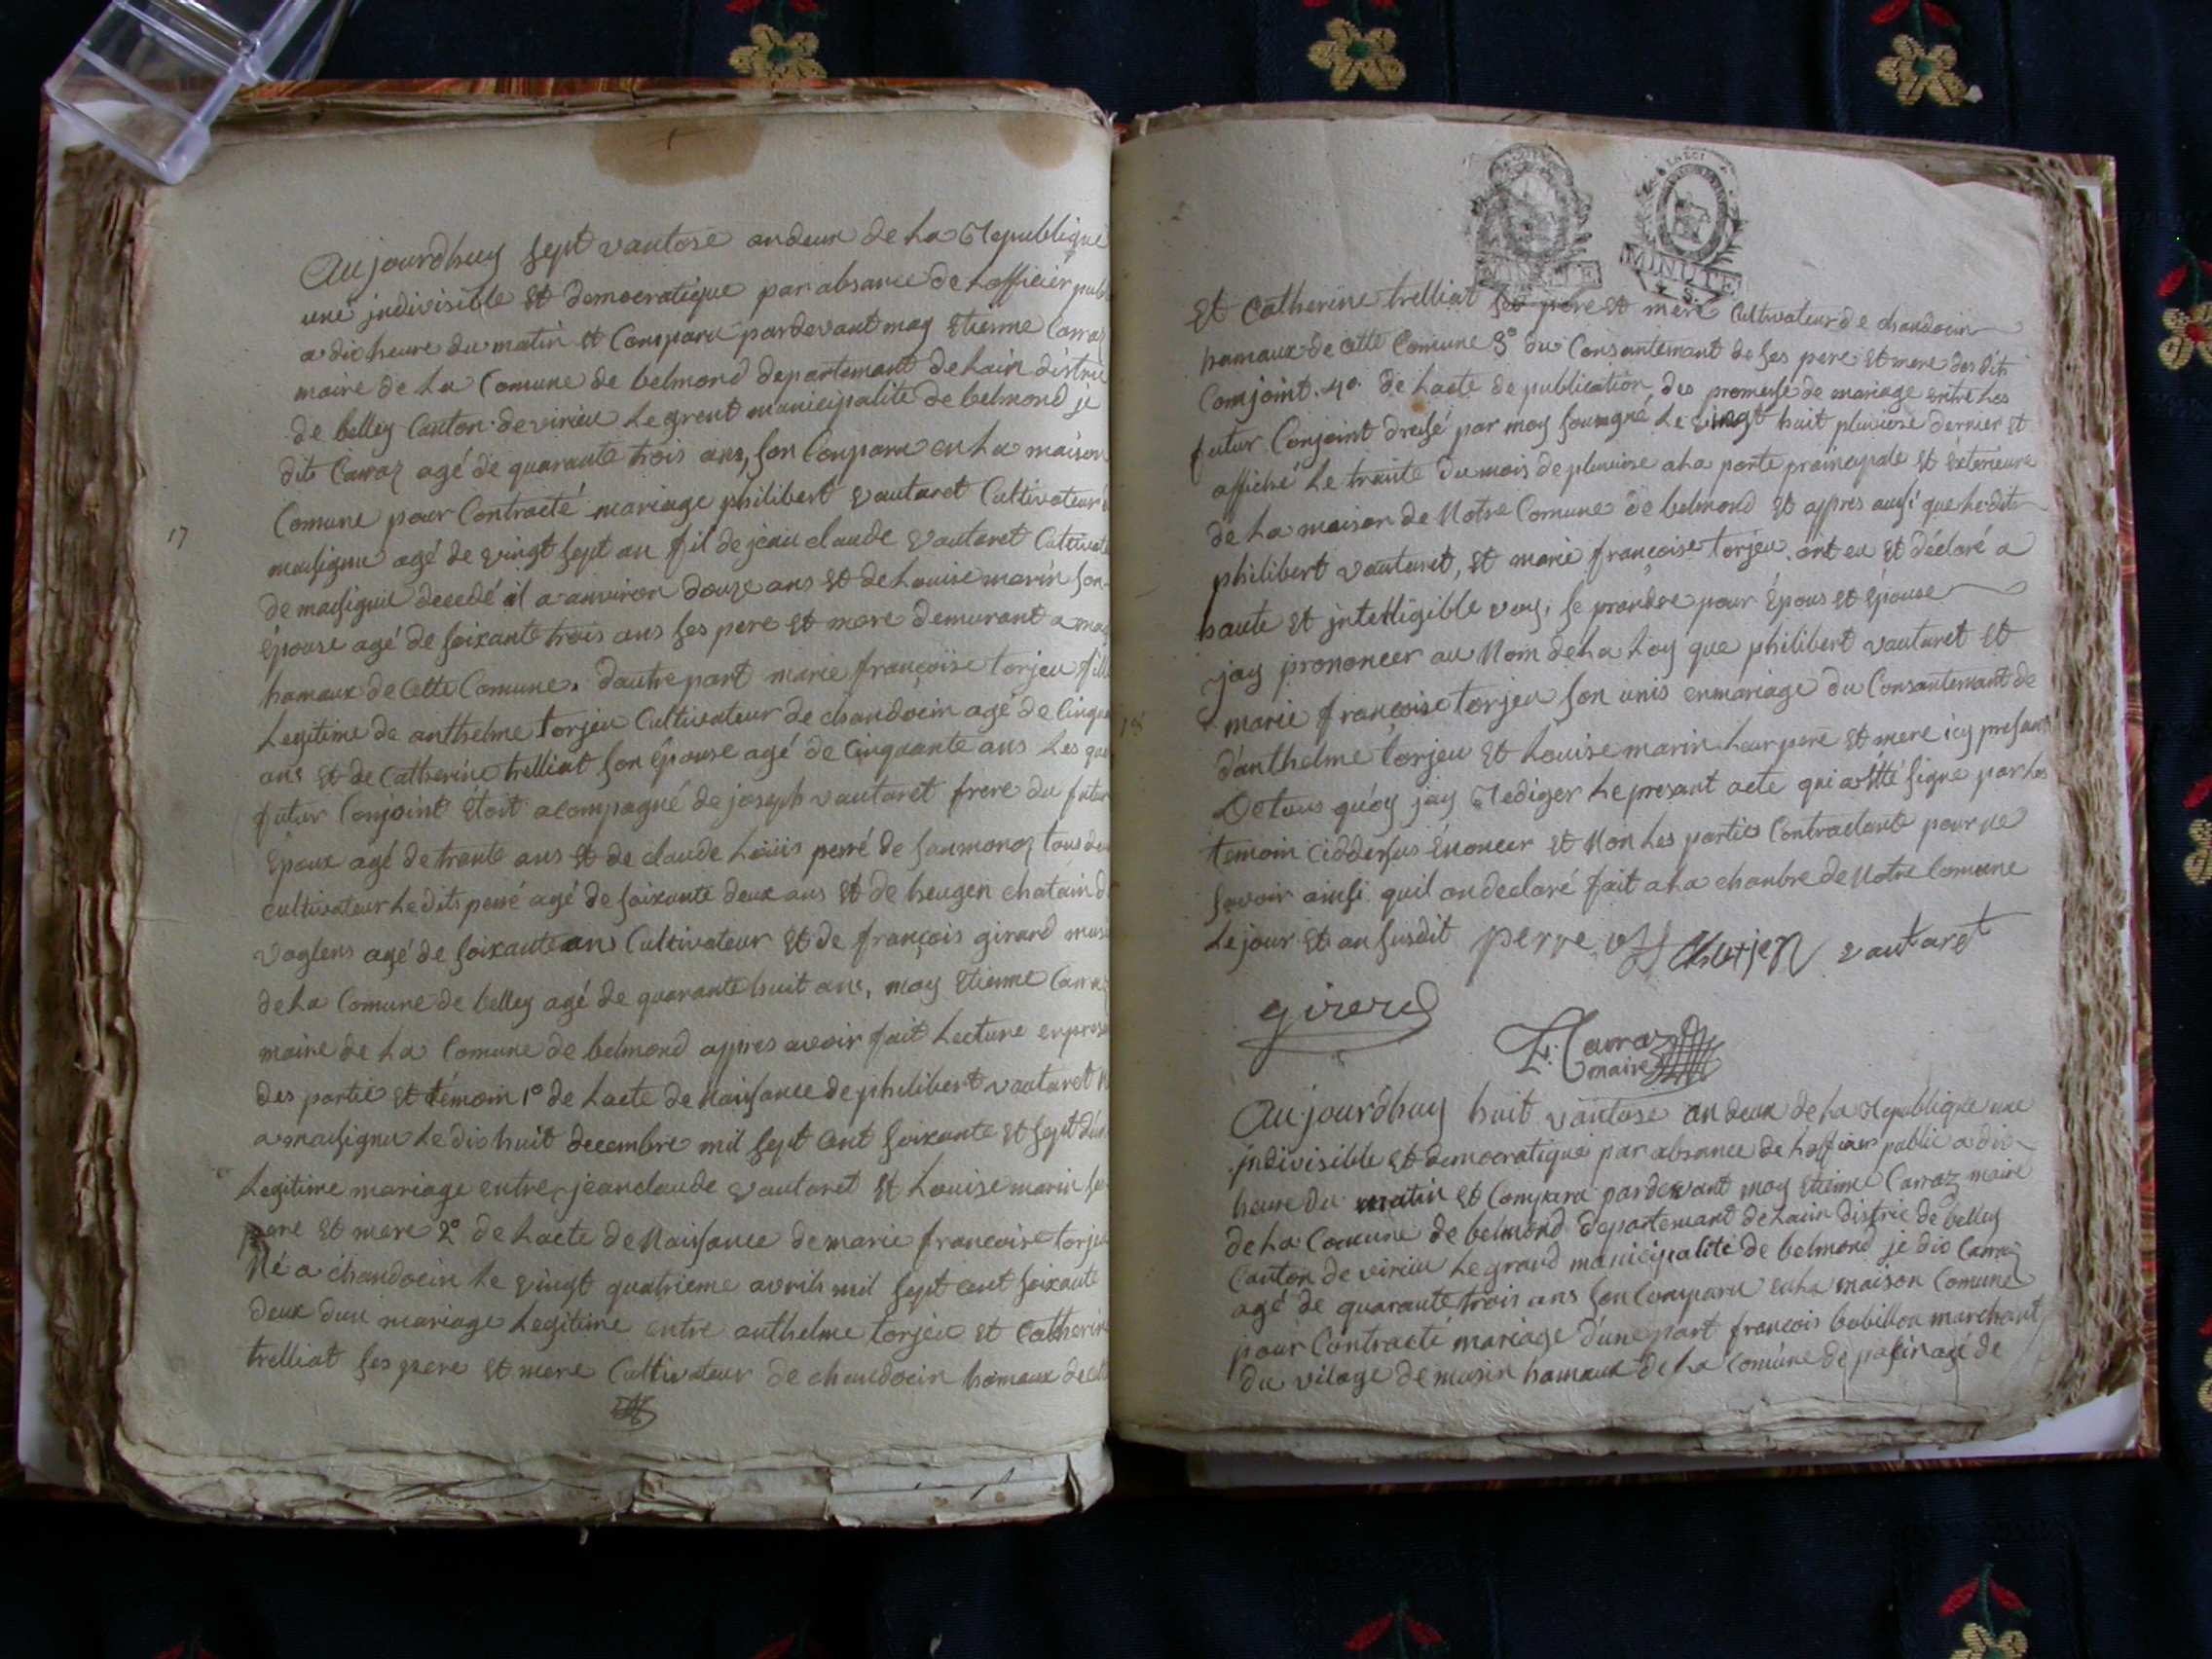 Aujourdhuy sept vantose an deux de La Republique
une jndivisible Et democratique par absance de Lofficier publ
a dix heure du matin Et Comparu pardevant moy Etienne Carraz
maire de La Comune de belmond departemant de Lain distric
de belley Canton de virieu Le grent municipalité de belmond je
dit Carraz agé de quarante trois ans, son Comparu en La maison
17
Comune pour Contracté mariage philibert vautaret Cultivateur
masignieu agé de vingt sept an fil de jean claude vautaret Cultivate
de masignieu decedé il a anviron douze ans Et de Louise marin son
Épouse agé de soixante trois ans ses pere Et mere demurant a mas
hamaux de Cette Comune. dautre part marie françoise torjeu fille
Legitime de anthelme torjeu Cultivateur de chandocin agé de Cinqua
ans Et de Catherine trelliat son Épouse agé de Cinquante ans Les que
futur Conjoint Étoit acompagné de joseph vautaret frere du futur
Epoux agé de trante ans Et de claude Loüis perré de Saumonoz tous deu
cultivateur Ledits perré agé de soixante deux ans Et de heugen chatain d
voglens agé de soixante ans Cultivateur Et de françois girard
de La Comune de belley agé de quarante huit ans, moy Etienne Carraz
maire de La Comune de belmond appres avoir fait Lecture en prese
des partie Et témoin 1° de Lacte de Naissance de philibert vautaret N
a masignieu Le dix huit decembre mil sept Cent soixante Et sept d'un
Legitime mariage entre jean claude vautaret Et Louise marin se
pere Et mere 2° de Lacte de Naissance de marie françoise torjeu
Né a chandocin Le vingt quatrieme avrils mil sept cent soixante
deux d'un mariage Legitime entre anthelme torjeu Et Catherine
trelliat ses pere Et mere Cultivateur de chandocin hamaux de cett
MINUTE
MINUTE
Et Catherine trelliat ses pere Et mere Cultivateur de chandocin
hamaux de Cette Comune 3° du Consantemant de ses pere Et mere des dits
Comjoint. 4° de Lacte de publication des promesse de mariage entre Les
futur Conjoint dresé par moy sousigné, Le vingt huit pluviose dernier Et
affiché Le trante du mois de pluviose a La porte prainsipale Et Exterieure
de La maison de Notre Comune de belmond Et appres aussi que Ledit
philibert vautaret, Et marie françoise torjeu ont eu Et déclaré a
haute Et jntelligible voys, se prandre pour Épous Et épouse
jay prononcer au Nom de La Loy que philibert vautaret Et
18
marie françoise torjeu son unis en mariage du Consantemant de
d'anthelme torjeu Et Louise marin Leur pere Et mere icy presant
De tous quoy jay Rediger Le presant acte qui a Etté signé par Les
temoin ciddessus Enoncer Et Non Les parties Contractante pour ne
savoir ainsi quil on declaré fait a La chanbre de Notre Comune
Le jour Et an susdit perre vautaret
girerd
E: Carraz
maire
Aujourdhuy huit vantose an deux de La Republique une
jndivisible Et democratique par absance de Lofficier public a dix
heure du matin Et Comparu pardevant moy Etienne Carraz maire
de La Comune de belmond departemant de Lain distric de belley
Canton de virieu Le grand municipalité de belmond je dit Carraz
agé de quarante trois ans son Comparu en La maison Comune
pour Contracté mariage d'une part françois babillon marchant
du vilage de musin hamaux de La Comune de